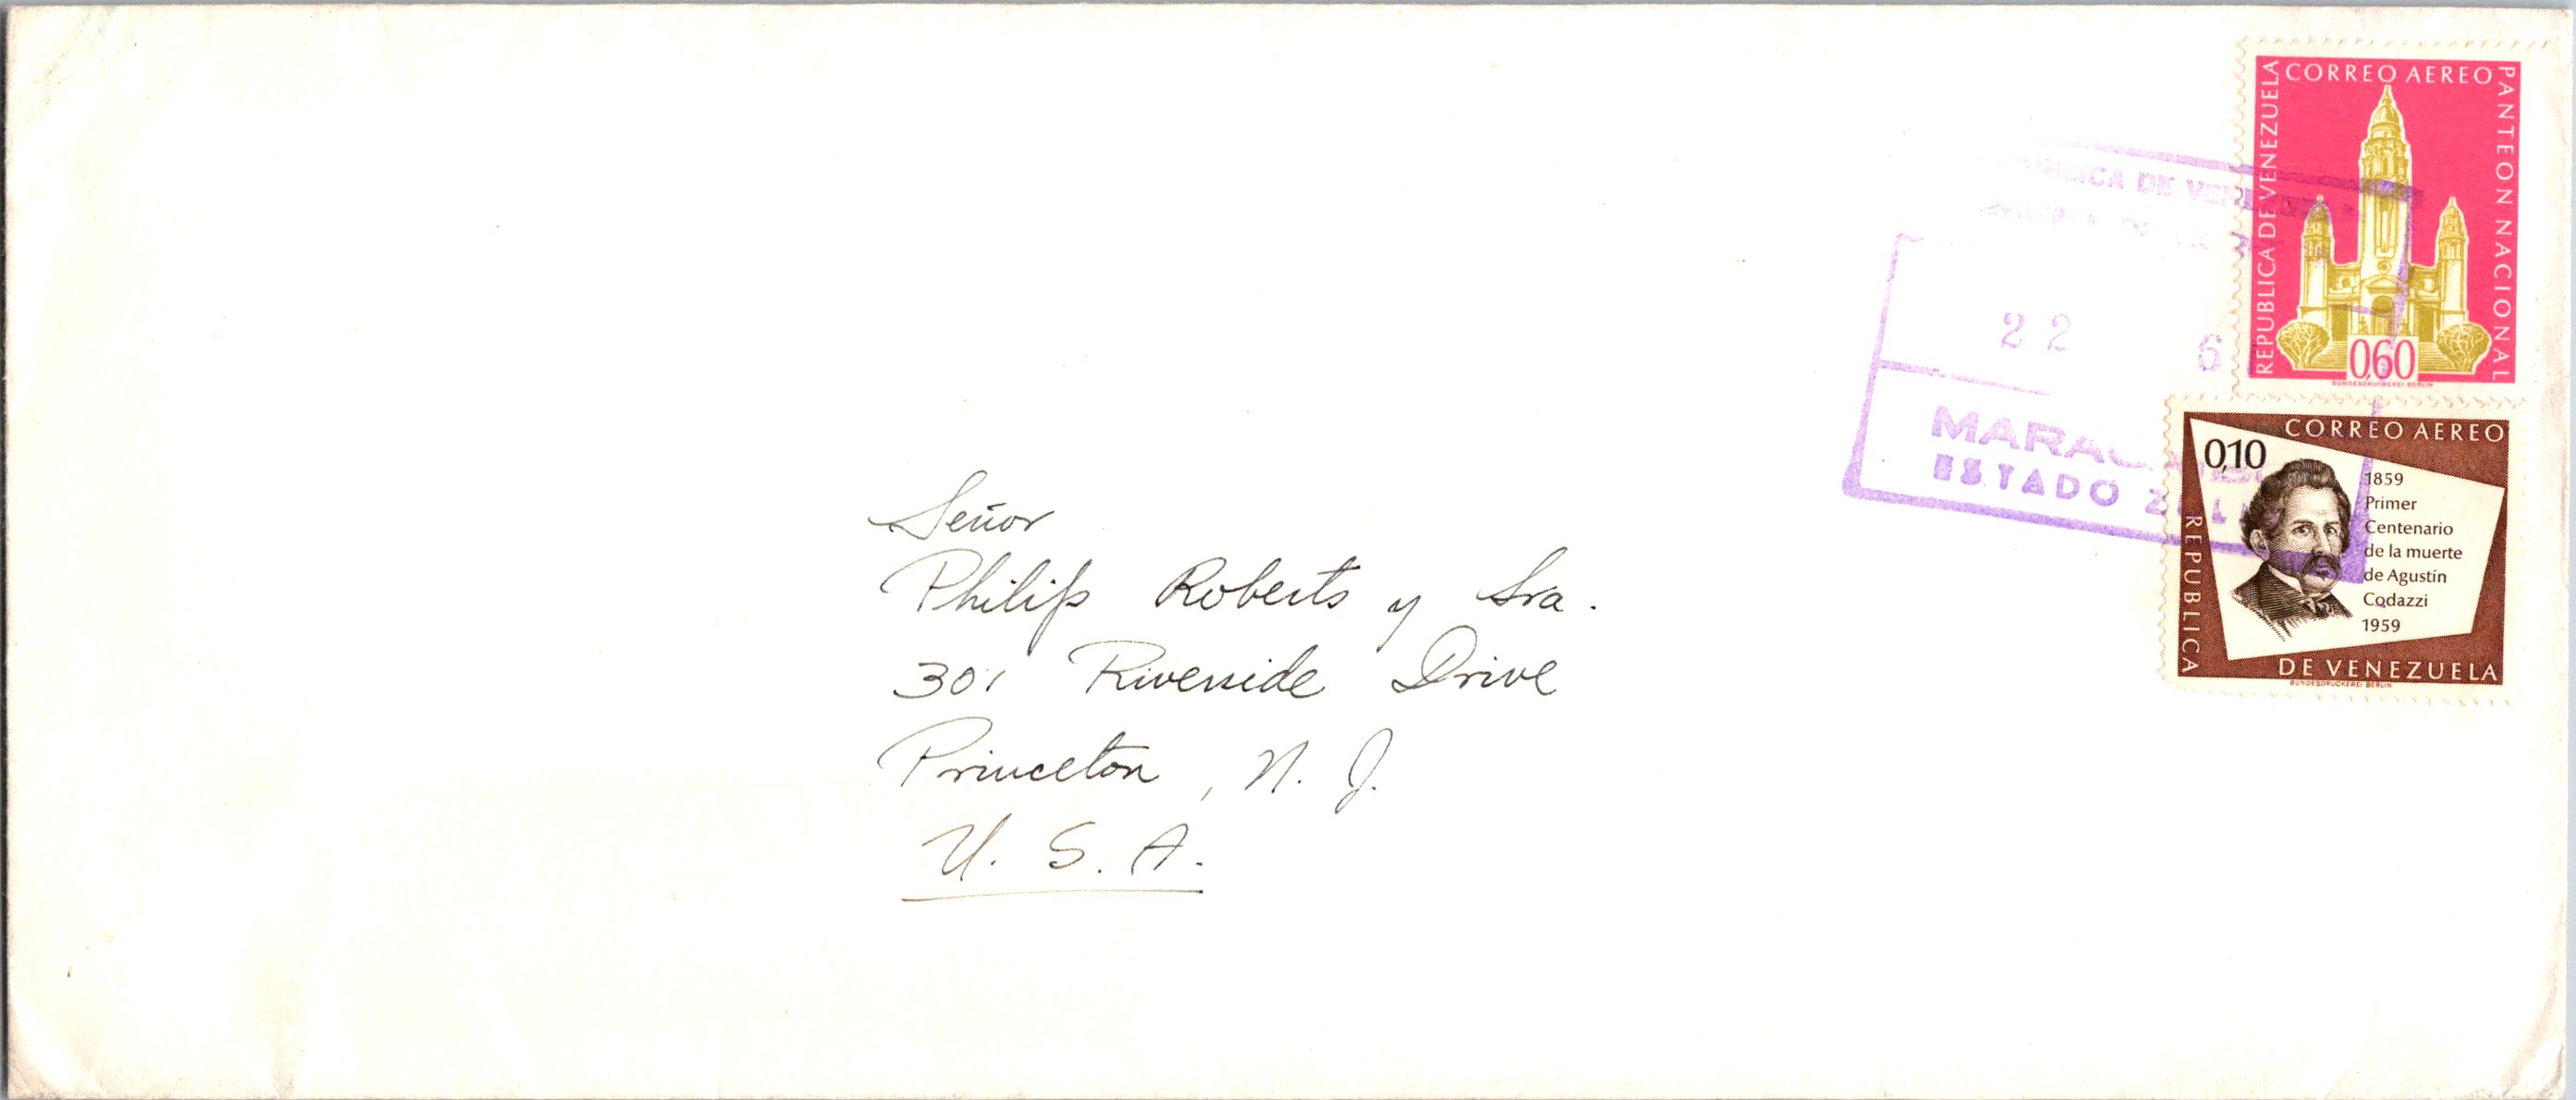 CORREO AEREO
REPUBLICA DE VENEZUELA
PANTEON NACIONAL
0,60
BUNDESDRUCKEREI BERLIN
DE
22 6
ESTADO
CORREO AEREO
0,10
1859
Primer
Centenario
de la muerte
de Agustín
Codazzi
1959
REPUBLICA
DE VENEZUELA
BUNDESDRUCKEREI BERLIN
Señor
Philip Roberts y Sra.
301 Riverside Drive
Princeton, N. J.
U. S. A.